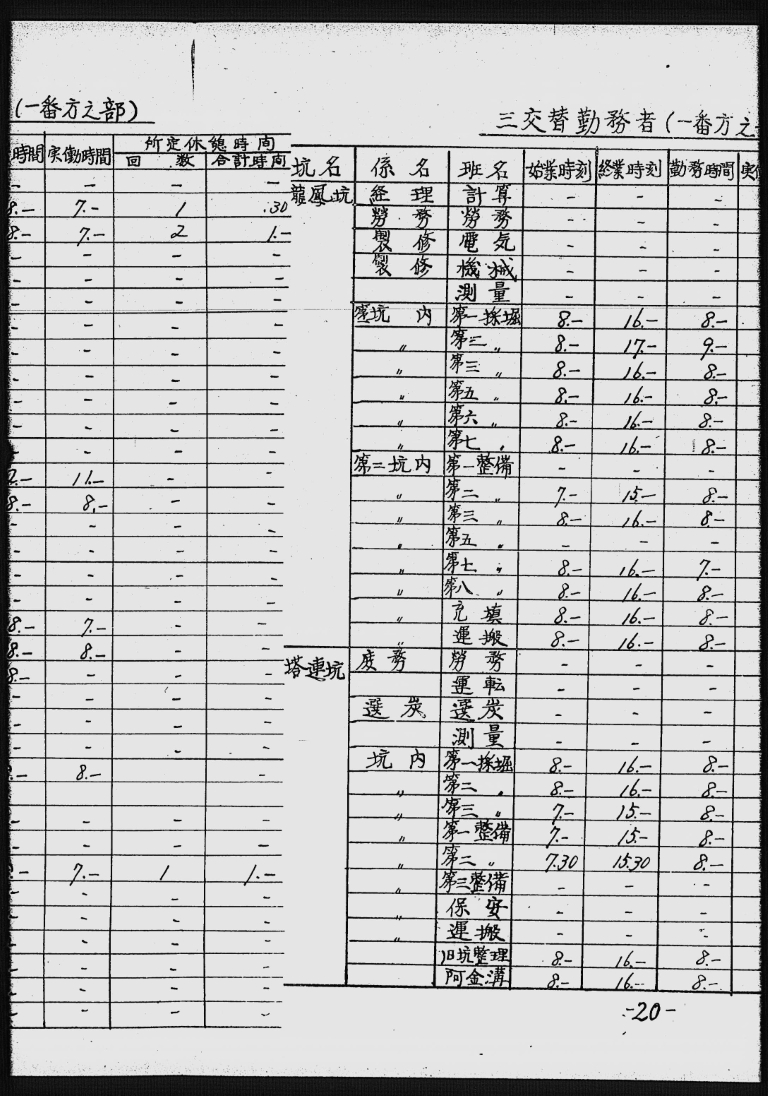 (一番方之部)
時間 実働時間 所定休憩時間
回数 合計時間
- - -
8.- 7.- 1 .30
8.- 7.- 2 1.-
- - - -
- - - -
- - - -
- - - -
- - - -
- - - -
- - - -
- - - -
- - - -
11.- - -
8.- 8.- - -
- - - -
- - - -
- - - -
- - - -
8.- 7.- - -
8.- 8.- - -
8.- - - -
- - - -
- - - -
- - - -
8.- -
- - - -
- - - -
- - - -
7.- 1 1.-
- - - -
- - - -
- - - -
- - - -
- - - -
三交替勤務者(一番方之
坑名 係名 班名 始業時刻 終業時刻 勤務時間 実
龍鳳坑 経理 計算 - - -
労務 労務 - - -
製修 電気 - - -
製修 機械 - - -
測量 - - -
坑内 第一採堀 8.- 16.- 8.-
〃 第二〃 8.- 17.- 9.-
〃 第三〃 8.- 16.- 8.-
〃 第五〃 8.- 16.- 8.-
〃 第六〃 8.- 16.- 8.-
〃 第七〃 8.- 16.- 8.-
第二坑内 第一整備 - - -
〃 第二〃 7.- 15.- 8.-
〃 第三〃 8.- 16.- 8.-
〃 第五〃 - - -
〃 第七〃 8.- 16.- 7.-
〃 第八〃 8.- 16.- 8.-
〃 充填 8.- 16.- 8.-
〃 運搬 8.- 16.- 8.-
塔連坑 庶務 労務 - - -
運転 - - -
選炭 選炭 - - -
測量 - - -
坑内 第一採堀 8.- 16.- 8.-
〃 第二〃 8.- 16.- 8.-
〃 第三〃 7.- 15.- 8.-
〃 第一整備 7.- 15.- 8.-
〃 第二〃 7.30 15.30 8.-
〃 第三整備 - - -
〃 保安 - - -
〃 運搬 - - -
旧坑整理 8.- 16.- 8.-
阿金溝 8.- 16.- 8.-
-20-